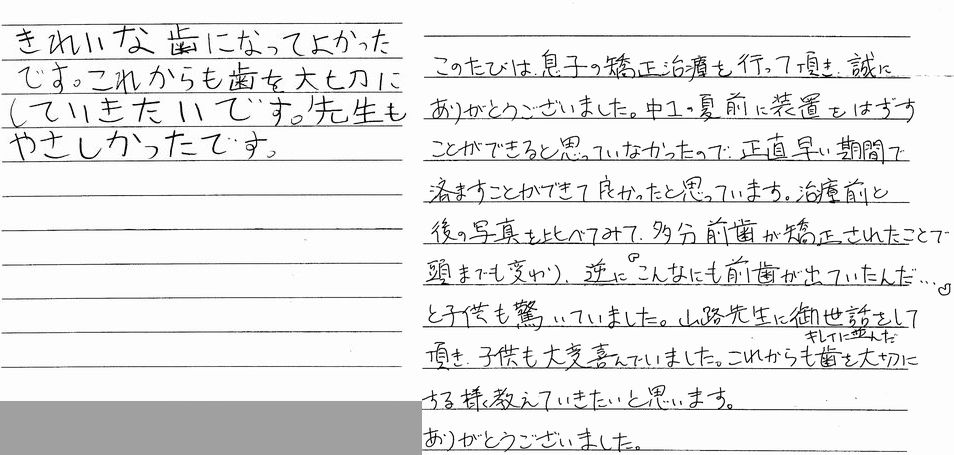 きれいな歯になってよかった
です。これからも歯を大切に
していきたいです。先生も
やさしかったです。
このたびは、息子の矯正治療を行って頂き、誠に
ありがとうございました。中1の夏前に装置をはずす
ことができると思っていなかったので、正直早い期間で
済ますことができて良かったと思っています。治療前と
後の写真を比べてみて、多分前歯が矯正されたことで
頭までも変わり、逆に“こんなにも前歯が出ていたんだ…”
と子供も驚いていました。山路先生に御世話をして
頂き、子供も大変喜んでいました。これからもキレイに並んだ歯を大切に
する様、教えていきたいと思います。
ありがとうございました。